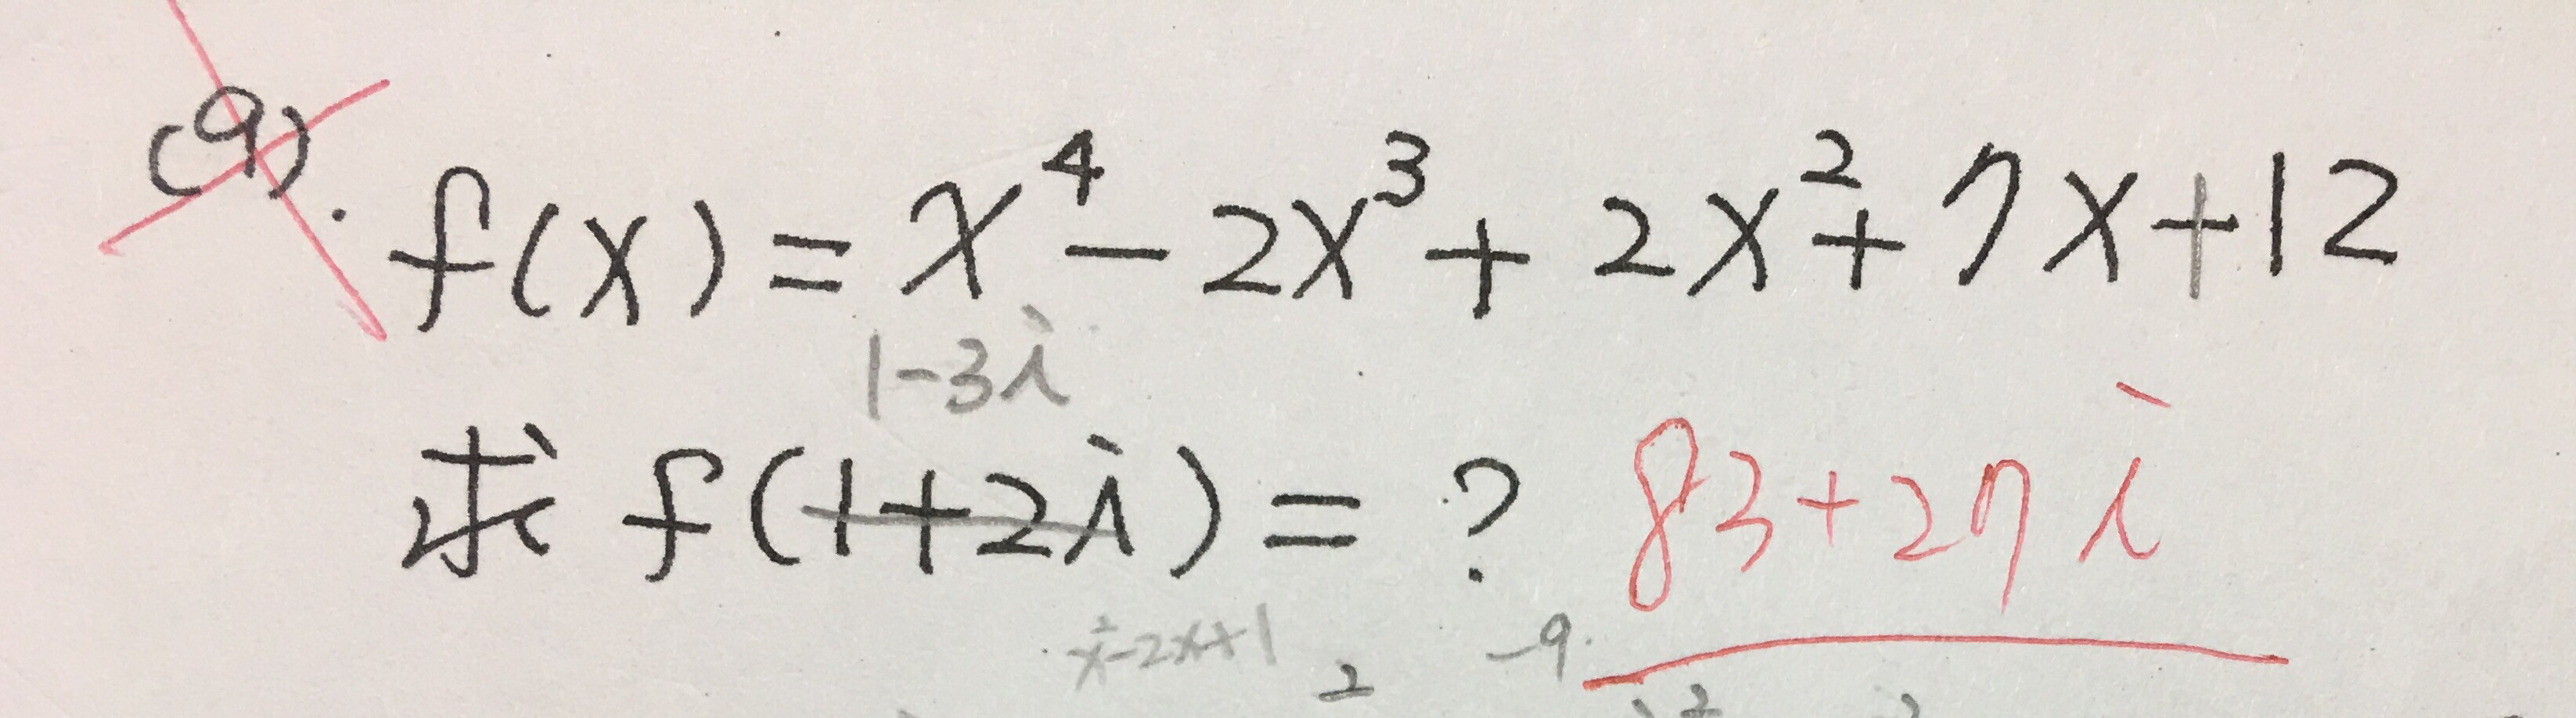 (9). f(x) = x⁴ - 2x³ + 2x² + 7x + 12
1-3i
求 f(1+2i) = ? 83+27i
x²-2x+1 -9
2